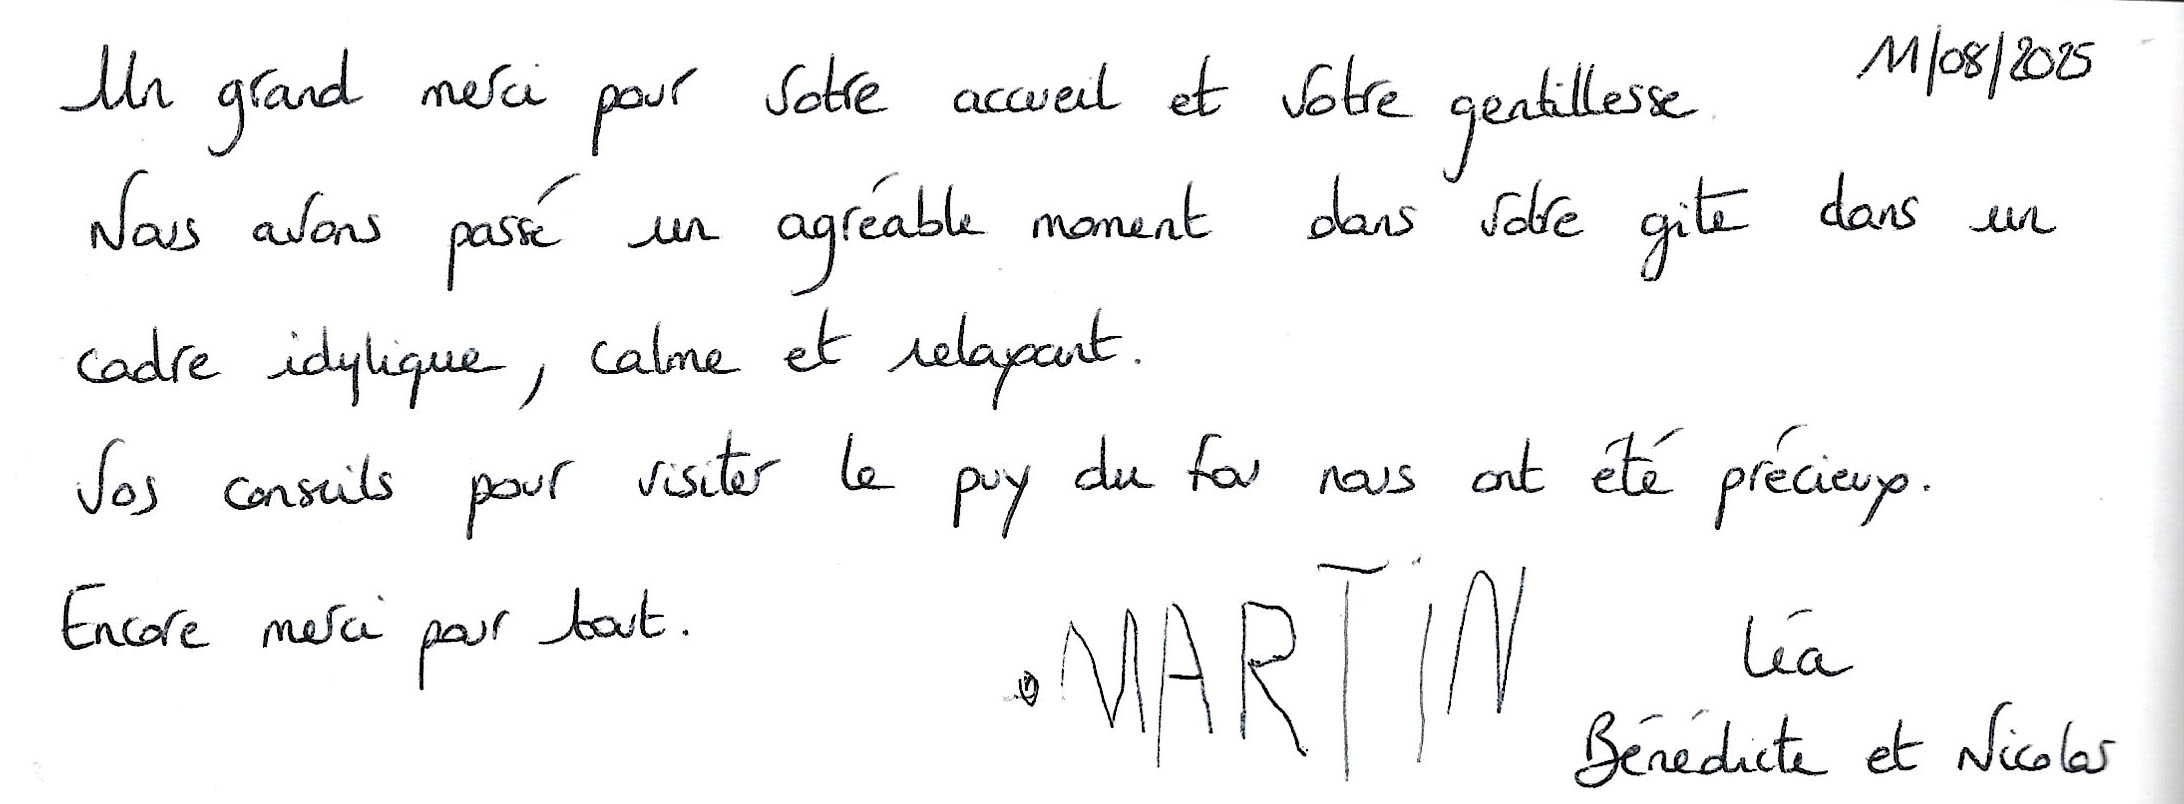 11/08/2025
Un grand merci pour votre accueil et votre gentillesse.
Nous avons passé un agréable moment dans votre gite dans un
cadre idylique, calme et relaxant.
Vos conseils pour visiter le puy du fou nous ont été précieux.
Encore merci pour tout.
MARTiN
Léa
Bénédicte et Nicolas